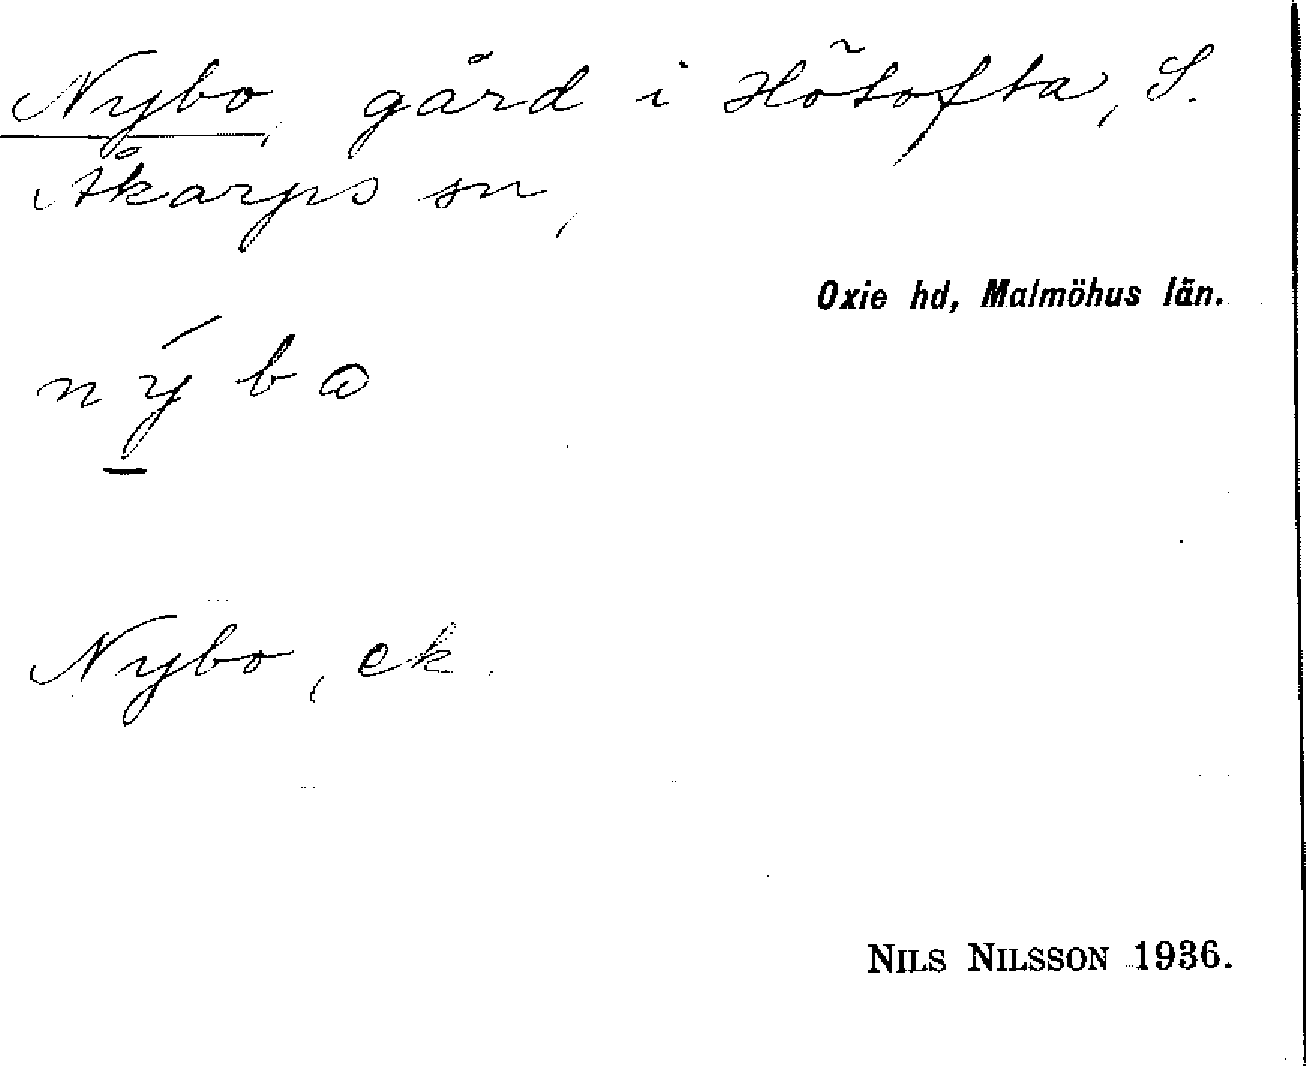 Nybo, gård i Hötofta, S.
Åkarps sn,
Oxie hd, Malmöhus län.
nýbo
Nybo, ek.
NILS NILSSON 1936.